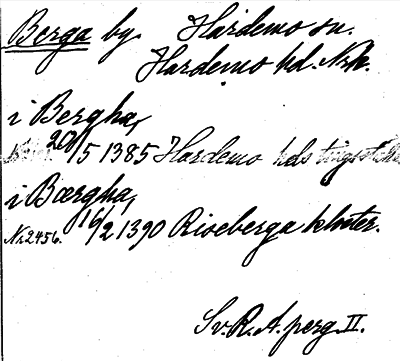 Berga by. Hardemo sn.
Hardemo hd. Nrk.
i Bergha,
20/5 1385 Hardemo hds tingställe
i Bærgha,
Nr 2456. 16/2 1390 Riseberga kloster.
Sv. R. A. perg. II.